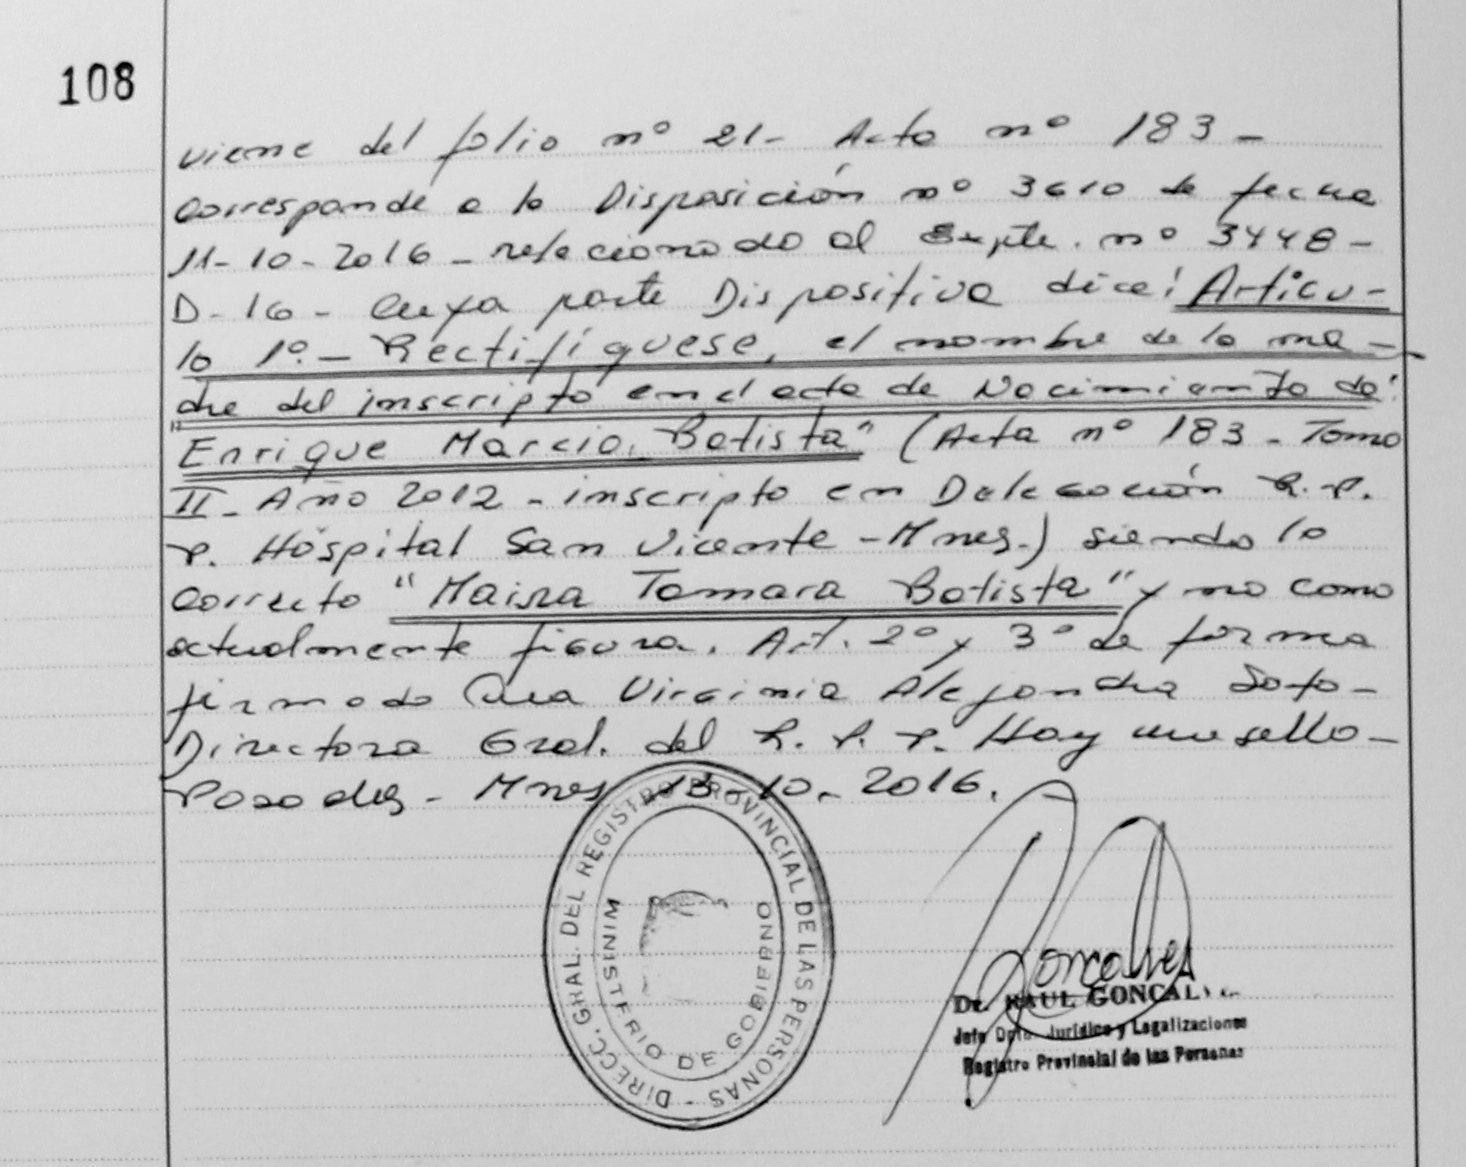 108
viene del folio nº 21- Acta nº 183-
corresponde a la Disposición nº 3610 de fecha
11-10-2016 - relacionado al Expte. nº 3448-
D-16- cuya parte Dispositiva dice: Artícu-
lo 1º.- Rectifíquese, el nombre de la ma-
dre del inscripto en el acta de Nacimiento de:
"Enrique Marcio, Batista" (Acta nº 183 - Tomo
II - Año 2012 - inscripto en Delegación R.P.
P. Hospital San Vicente - Mnes.) siendo lo
correcto "Maisa Tamara Batista" y no como
actualmente figura. Art. 2º y 3º de forma
firmado Dra Virginia Alejandra Soto-
Directora Gral. del R. P. P. Hay un sello-
Posadas - Mnes 13-10-2016.
DIRECC. GRAL. DEL REGISTRO PROVINCIAL DE LAS PERSONAS -
MINISTERIO DE GOBIERNO
Goncalves
Dr. RAUL GONCAL
Jefe Dpto. Jurídico y Legalizaciones
Registro Provincial de las Personas